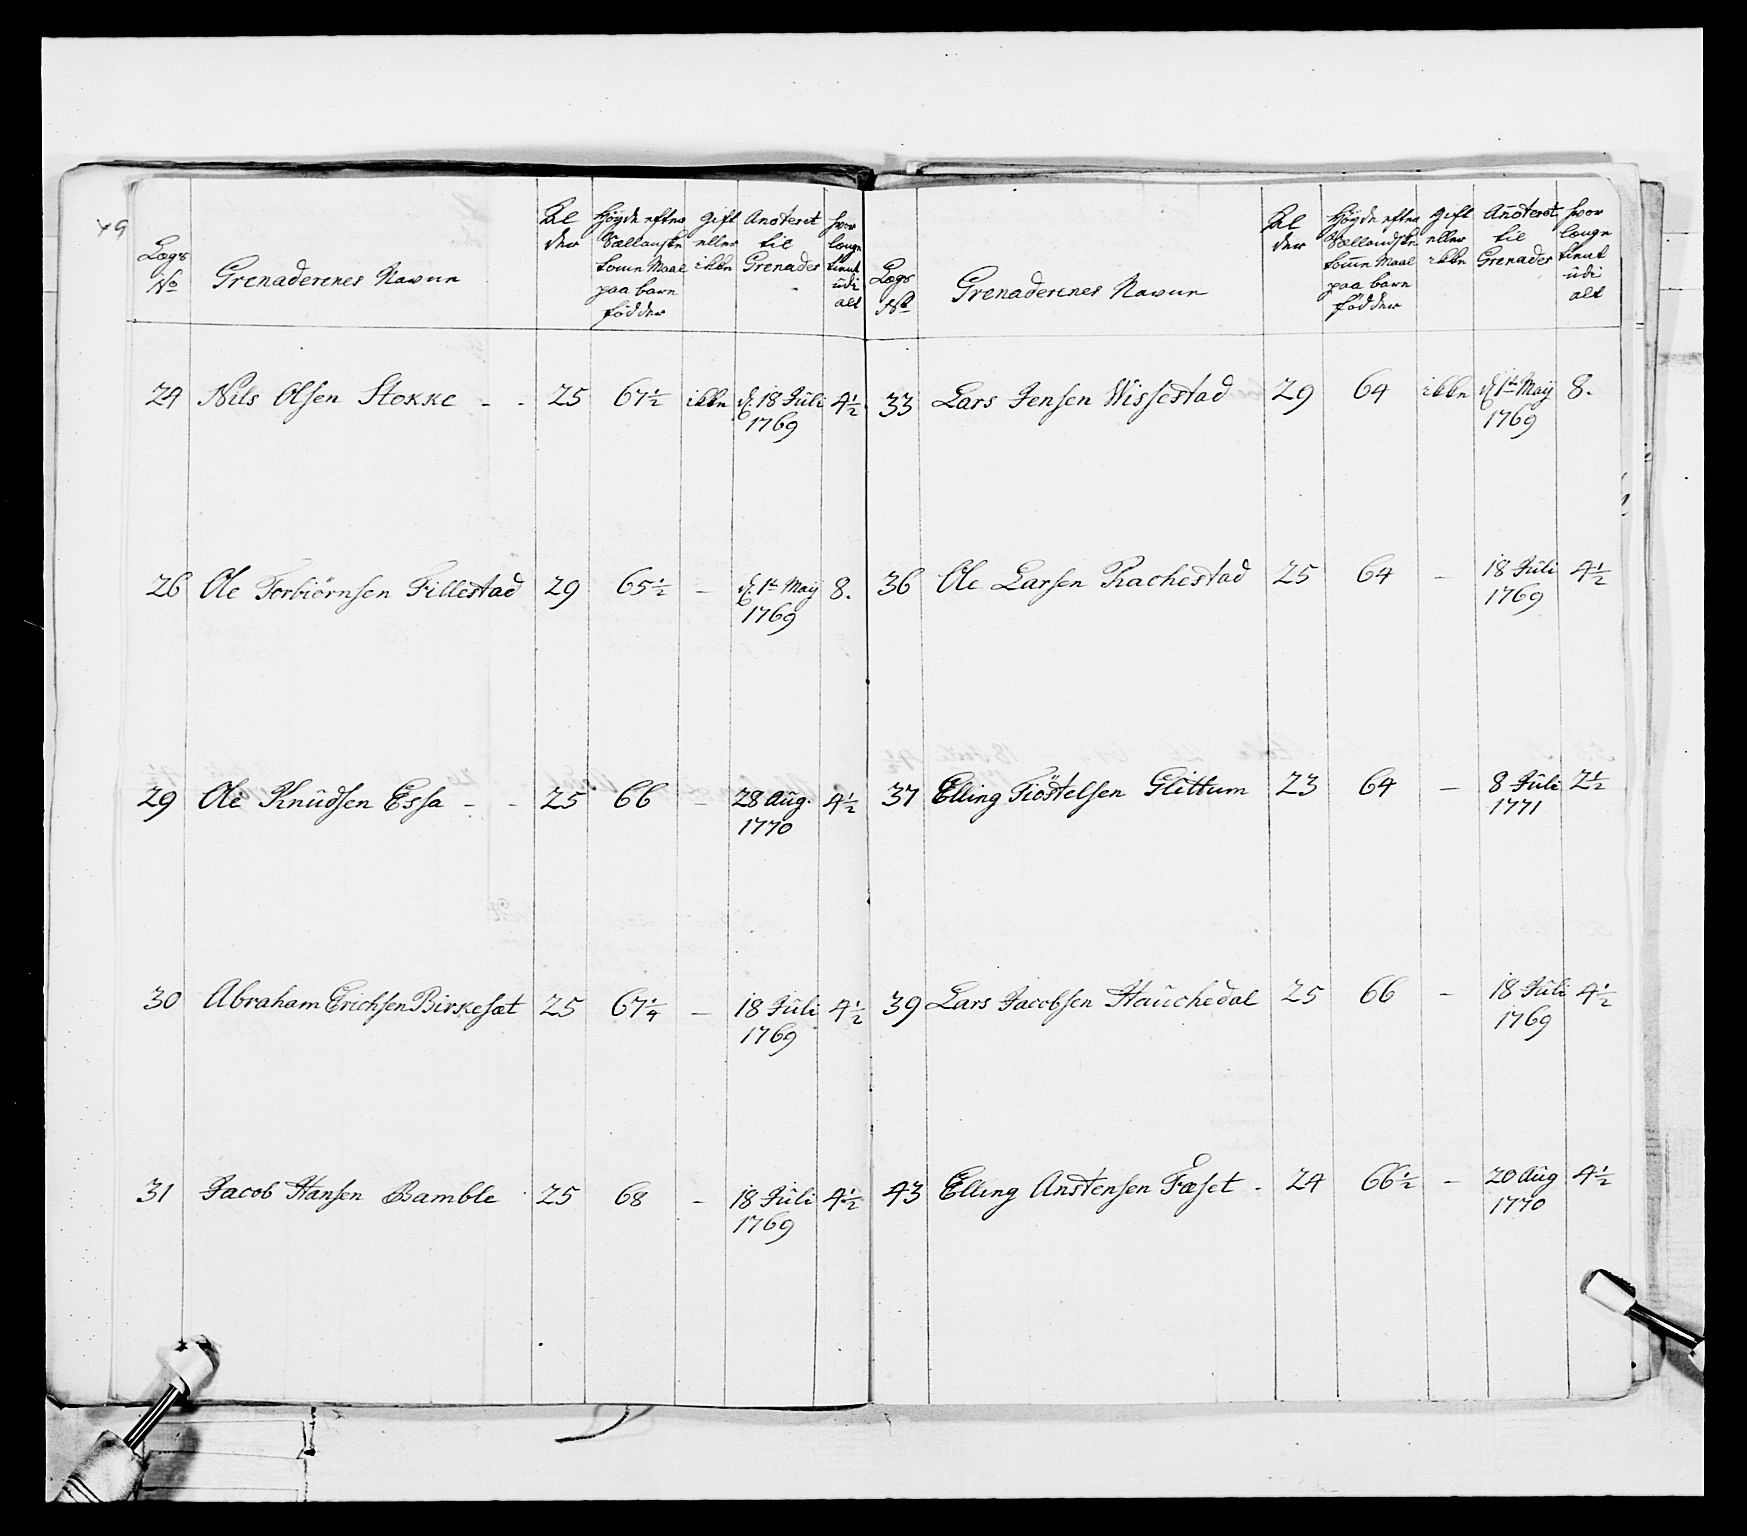 Lægs No
Grenaderenes Navne
Al der
Høyde efter Siællandske tome Maal paa bare födder
gift eller ikke
Anoteret til Grenader
hvor længe tient udi alt
24 Nils Olsen Stokke - - 25 67½ ikke d. 18 Juli 1769 4½
26 Ole Torbiörnsen Fillestad 29 65½ - d. 1te Maij 1769 8.
29 Ole Knudsen Essa - - 25 66 - 28 Aug. 1770 4½
30 Abraham Erichsen Birkesæt 25 67¼ - 18 Juli 1769 4½
31 Jacob Hansen Bamble 25 68 - 18 Juli 1769 4½
Lægs No
Grenaderenes Navne
Al der
Høyde efter Siællandske tome Maal paa bare födder
gift eller ikke
Anoteret til Grenader
hvor længe tient udi alt
33 Lars Jensen Wissestad 29 64 ikke d. 1te Maij 1769 8.
36 Ole Larsen Rachestad 25 64 - 18 Juli 1769 4½
37 Elling Tiöstelsen Glittum 23 64 - 8 Juli 1771 2½
39 Lars Jacobsen Hauchedal 25 66 - 18 Juli 1769 4½
43 Elling Anstensen Fæset - 24 66½ - 20 Aug 1770 4½